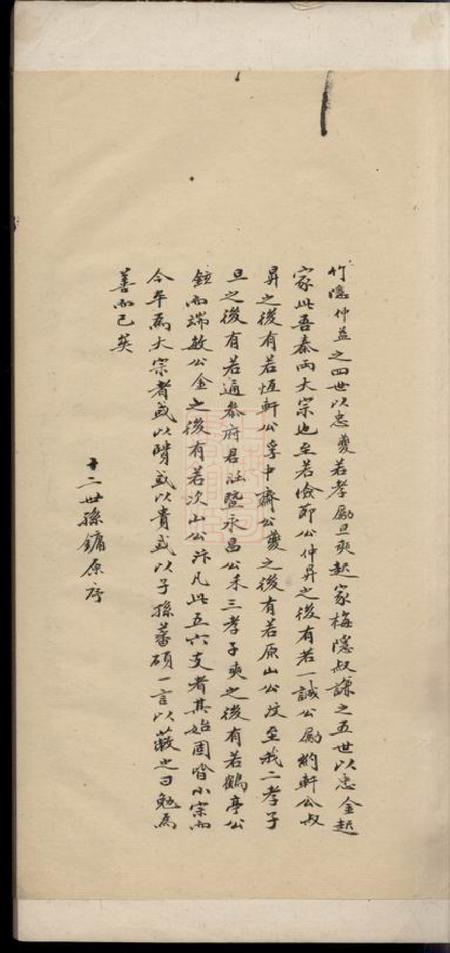 竹隱仲益之四世以忠夔若孝勵旦奭起家梅隱叔謙之五世以忠金起
家此吾秦兩大宗也至若儉節公仲昇之後有若一誠公勵約軒公叔
昇之後有若恆軒公孚中齋公夔之後有若原山公汶至我二孝子
旦之後有若通參府君暨永昌公禾三孝子奭之後有若鶴亭公
鈺而端敏公金之後有若次山公汴凡此五六支者其始固皆小宗而
今卒為大宗者或以賢或以貴或以子孫蕃碩一言以蔽之曰勉為
善而已矣
十二世孫鏞原序